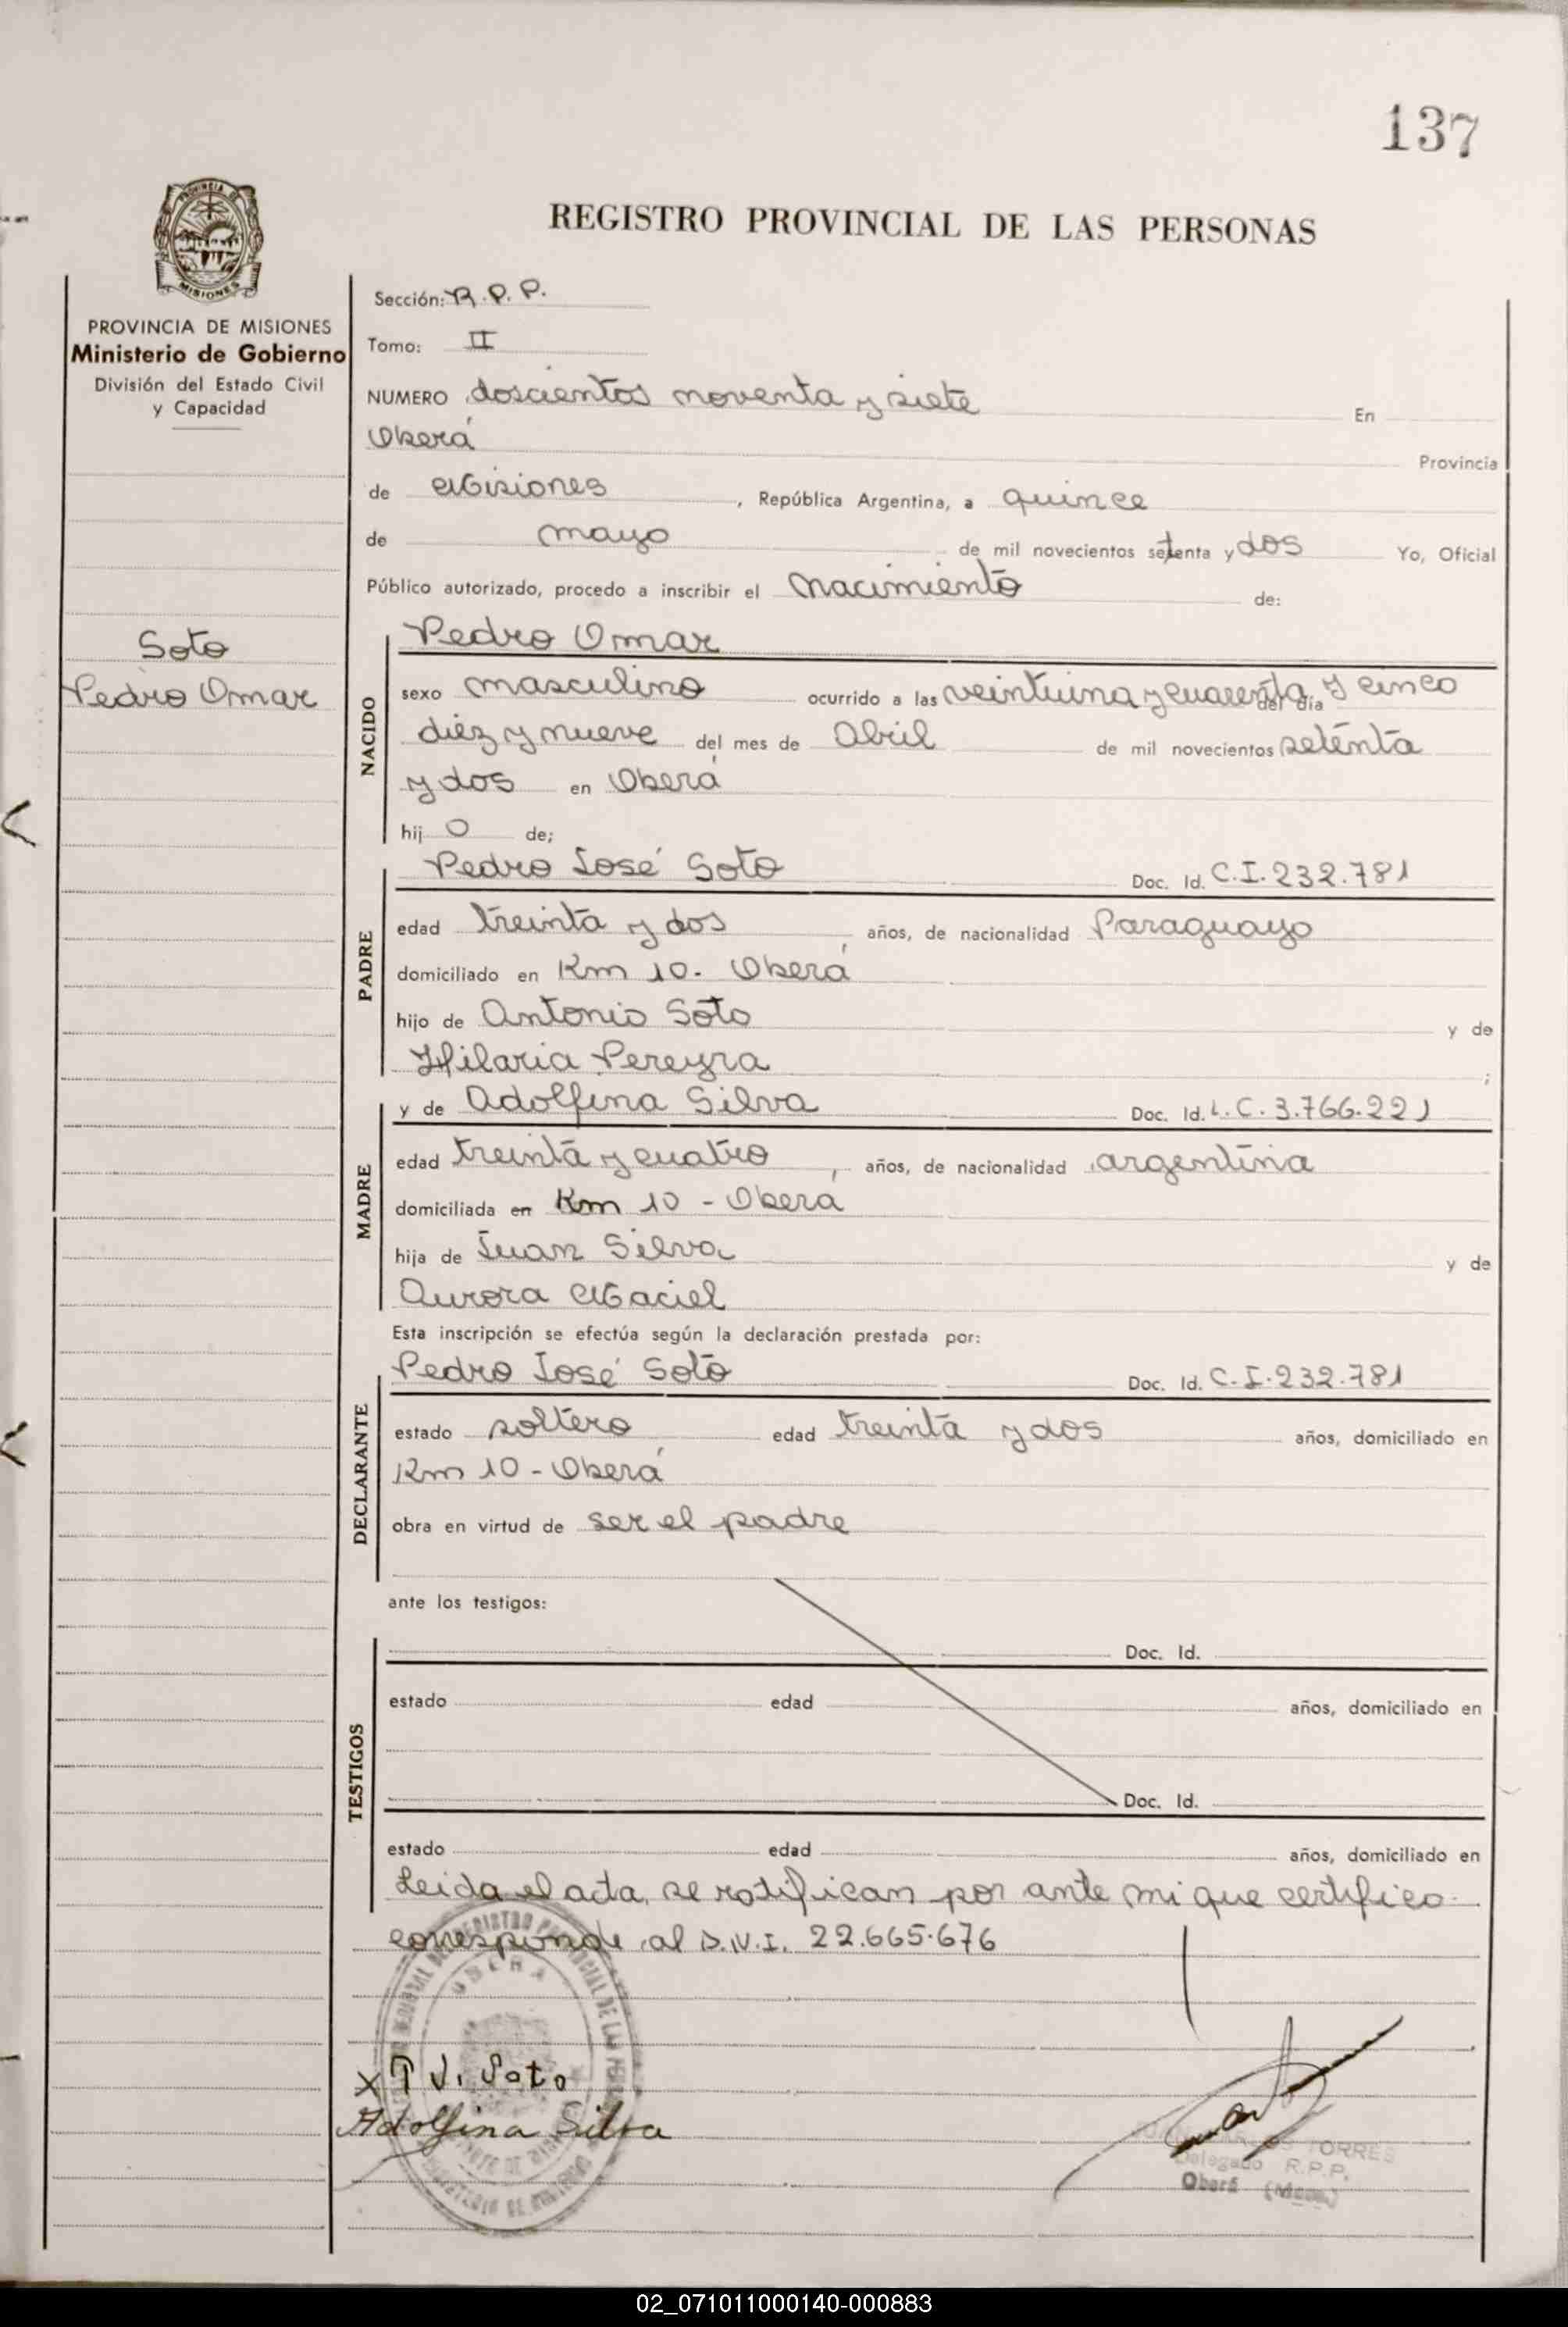 137
PROVINCIA DE
MISIONES
REGISTRO PROVINCIAL DE LAS PERSONAS
PROVINCIA DE MISIONES
Ministerio de Gobierno
División del Estado Civil
y Capacidad
Soto
Pedro Omar
Sección: R.P.P.
Tomo: II
NUMERO doscientos noventa y siete En
Oberá Provincia
de Misiones, República Argentina, a quince
de mayo de mil novecientos setenta y dos Yo, Oficial
Público autorizado, procedo a inscribir el Nacimiento de:
NACIDO
Pedro Omar
sexo masculino ocurrido a las veintiuna y cuarenta y cinco del día
diez y nueve del mes de Abril de mil novecientos setenta
y dos en Oberá
hij o de;
PADRE
Pedro José Soto Doc. Id. C.I. 232.781
edad treinta y dos años, de nacionalidad Paraguayo
domiciliado en Km 10. Oberá
hijo de Antonio Soto y de
Hilaria Pereyra ;
MADRE
y de Adolfina Silva Doc. Id. L.C. 3.766.221
edad treinta y cuatro, años, de nacionalidad argentina
domiciliada en Km 10 - Oberá
hija de Juan Silva y de
Aurora Maciel
Esta inscripción se efectúa según la declaración prestada por:
DECLARANTE
Pedro José Soto Doc. Id. C.I. 232.781
estado soltero edad treinta y dos años, domiciliado en
Km 10 - Oberá
obra en virtud de ser el padre
ante los testigos:
TESTIGOS
Doc. Id.
estado edad años, domiciliado en
Doc. Id.
estado edad años, domiciliado en
Leida el acta, se ratifican por ante mi que certifico.
corresponde al D.N.I. 22.665.676
OBERA
X P J. Soto
Adolfina Silva
TORRES
Delegado R.P.P.
Oberá (Mnes.)
02_071011000140-000883